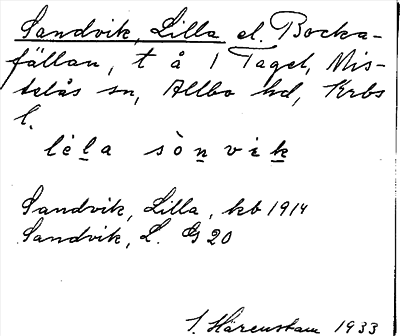 Sandvik, Lilla el. Bocka-
fällan, t å 1 Taget, Mis-
telås sn, Allbo hd, Krbs
l.
lèla sònvik
Sandvik, Lilla, kb 1914
Sandvik, L. G 20
S. Härenstam 1933